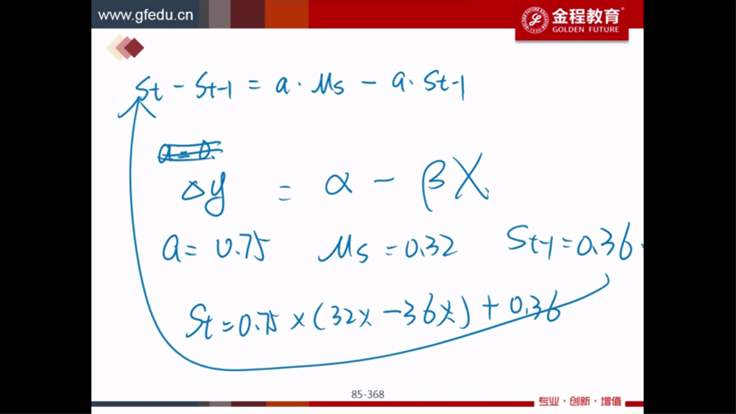 www.gfedu.cn
金程教育
GOLDEN FUTURE
St - St-1 = a · μs - a · St-1
a = 0.
Δy = α - βX
a = 0.75 μs = 0.32 St-1 = 0.36
St = 0.75 × (32% - 36%) + 0.36
85-368
专业·创新·增值